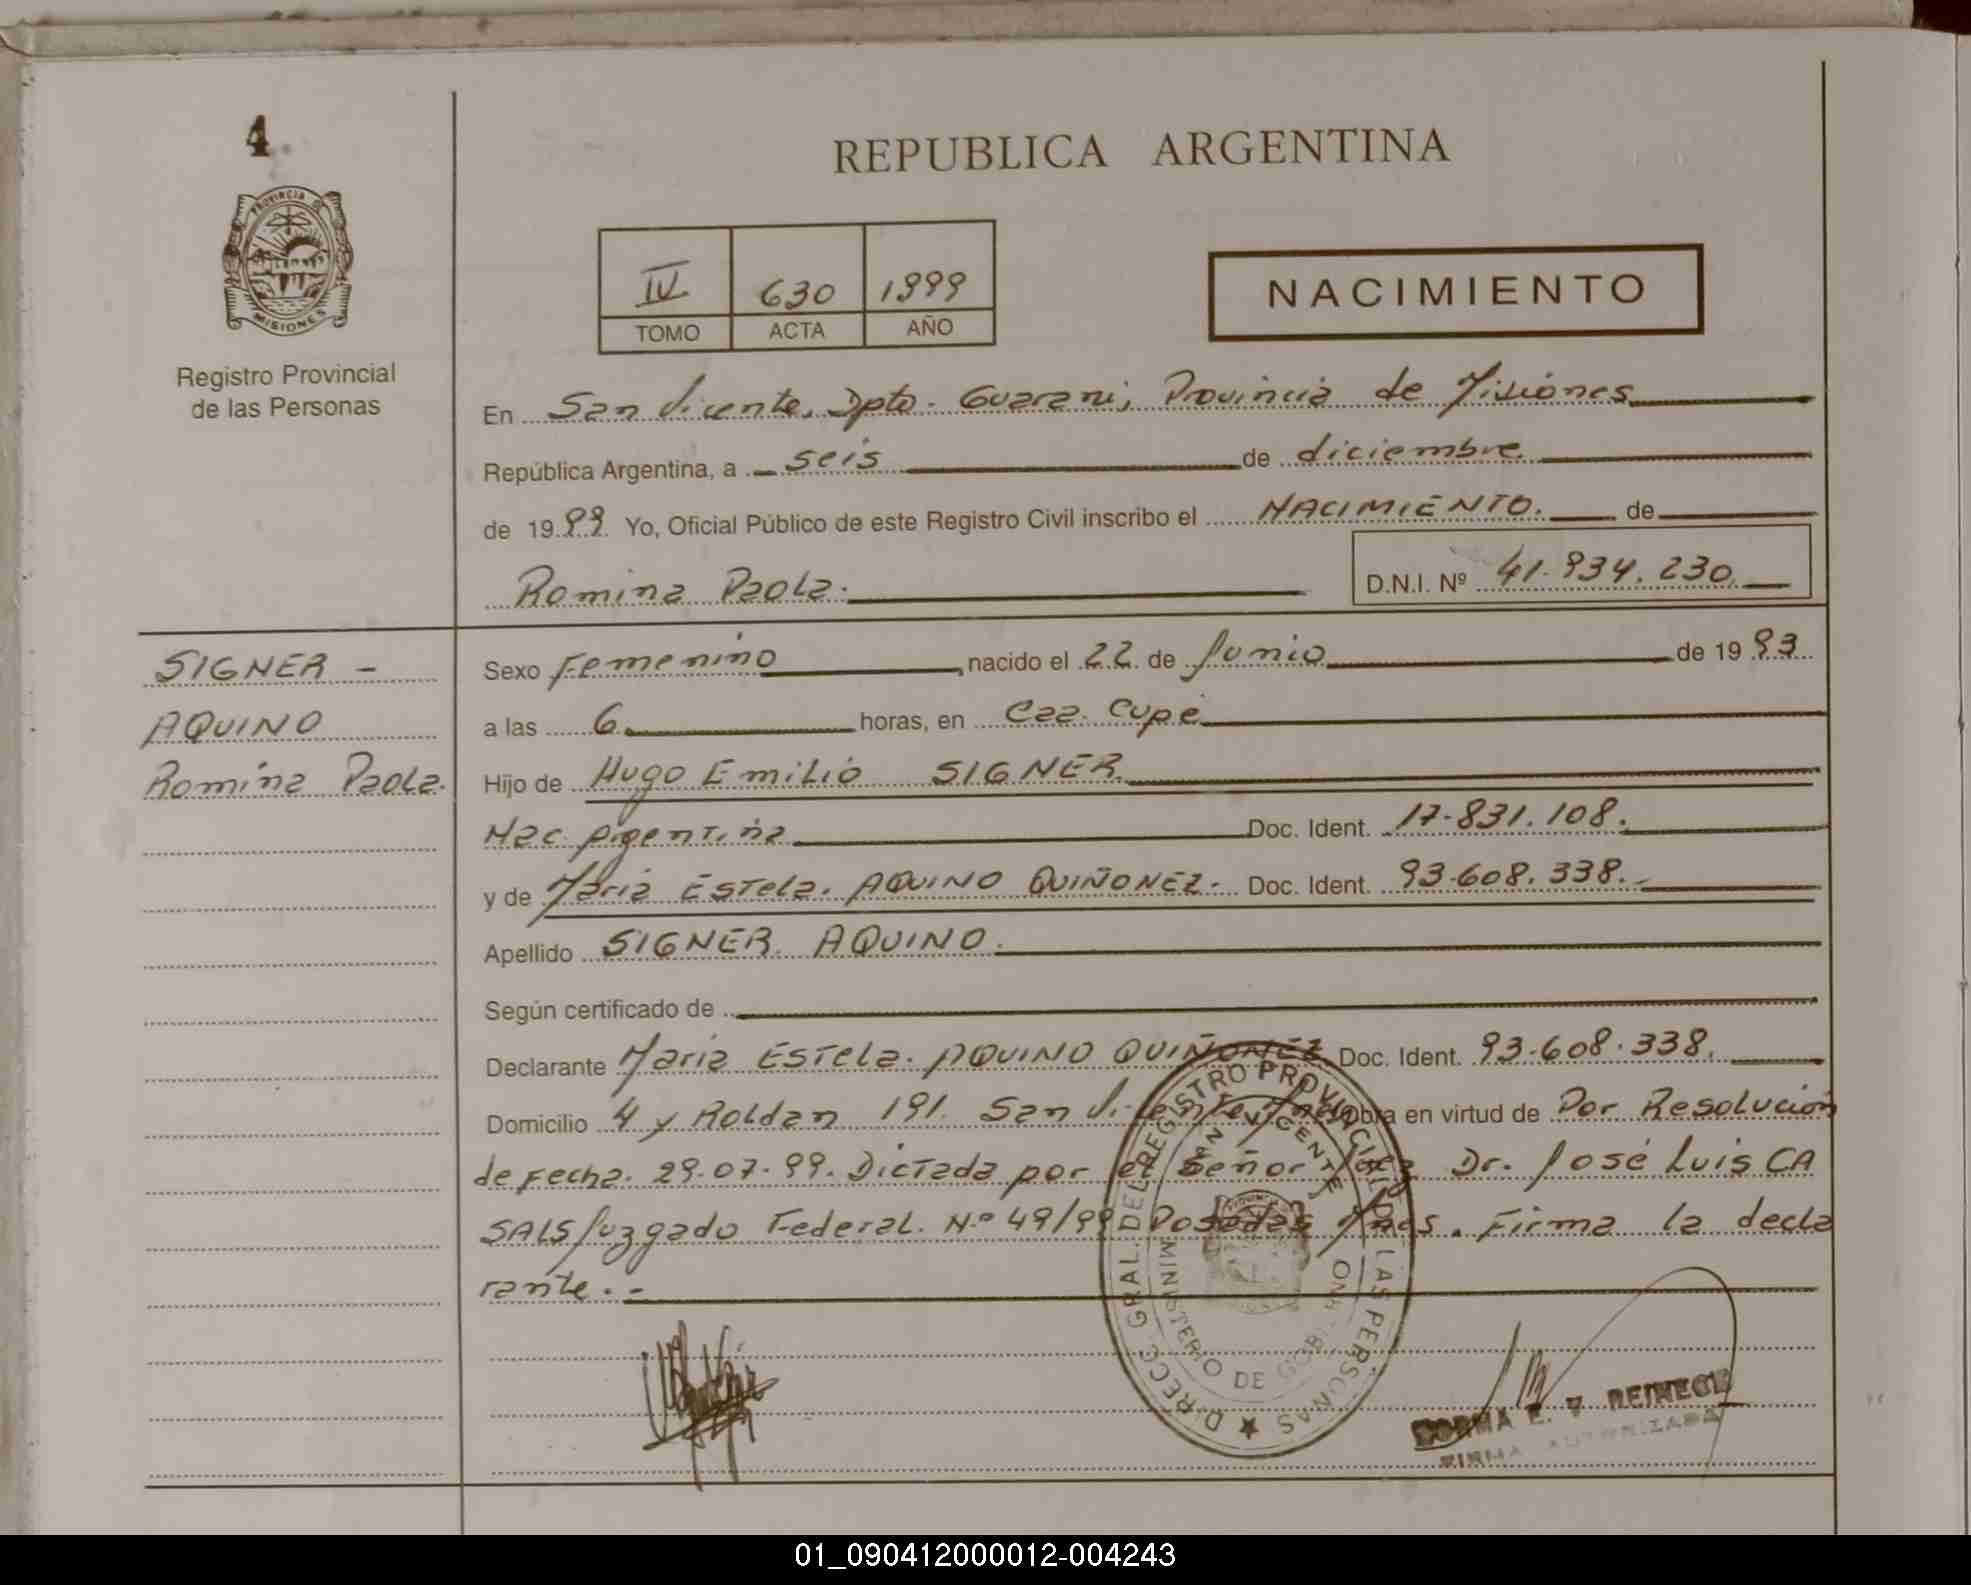 4
REPUBLICA ARGENTINA
PROVINCIA DE MISIONES
Registro Provincial
de las Personas
IV 630 1999
TOMO ACTA AÑO
NACIMIENTO
En San Vicente, Dpto. Guarani, Provincia de Misiones
República Argentina, a seis de diciembre
de 1999 Yo, Oficial Público de este Registro Civil inscribo el NACIMIENTO. de
Romina Paola. D.N.I. Nº 41.934.230
SIGNER -
AQUINO
Romina Paola.
Sexo Femenino nacido el 22 de Junio de 1993
a las 6 horas, en Caa. Cupe
Hijo de Hugo Emilio SIGNER
Nac Argentina Doc. Ident. 17.831.108.
y de Maria Estela. AQUINO QUIÑONEZ. Doc. Ident. 93.608.338.
Apellido SIGNER AQUINO.
Según certificado de
Declarante Maria Estela. AQUINO QUIÑONEZ Doc. Ident. 93.608.338.
Domicilio 4 y Roldan 191. San Vicente Mnes Obra en virtud de Por Resolución
de Fecha. 29.07.99. Dictada por el Señor Juez Dr. José Luis CA
SALS Juzgado Federal. N.º 49/99 Posadas Mnes. Firma la decla
rante. -
DIRECC. GRAL. DEL REGISTRO PROVINCIAL DE LAS PERSONAS
SAN VICENTE
MINISTERIO DE GOBIERNO
NORMA E. V REINECK
FIRMA AUTORIZADA
01_090412000012-004243